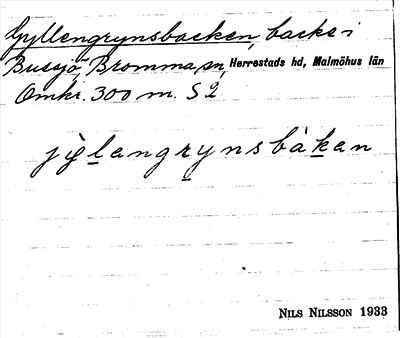 Gyllengrynsbacken, backe i
Bussjö, Bromma sn, Herrestads hd, Malmöhus län
Omkr. 300 m. S 2
jỳlangrynsbàkan
NILS NILSSON 1933